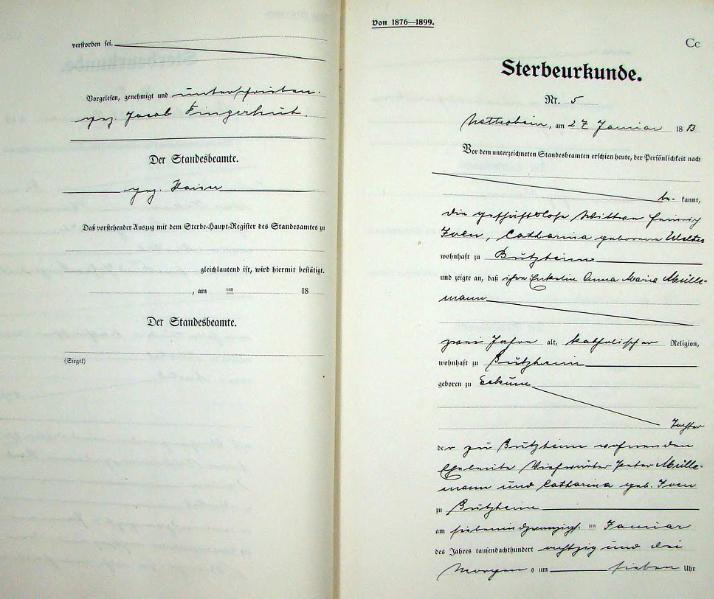 verstorben sei.
Vorgelesen, genehmigt und unterschrieben.
gez. Jacob Fingerhut.
Der Standesbeamte.
gez.
Daß vorstehender Auszug mit dem Sterbe-Haupt-Register des Standesamtes zu
gleichlautend ist, wird hiermit bestätigt.
, am ten 18
Der Standesbeamte.
(Siegel)
Von 1876—1899.
Cc
Sterbeurkunde.
Nr. 5
am 27 Januar 18 83
Vor dem unterzeichneten Standesbeamten erschien heute, der Persönlichkeit nach
be- kannt,
die geschäftslose Wittwe Heinrich
Iven, Catharina geborene Welter
wohnhaft zu Bützheim
und zeigte an, daß ihre Enkelin Anna Maria Mülle-
mann
zwei Jahre alt, katholischer Religion,
wohnhaft zu Bützheim
geboren zu Eckum
Tochter
der zu Bützheim wohnenden
Eheleute Peter Mülle-
mann und Catharina geb. Iven
zu Bützheim
am siebenundzwanzigsten Januar
des Jahres tausendachthundert achtzig und drei
Morgens um sieben Uhr